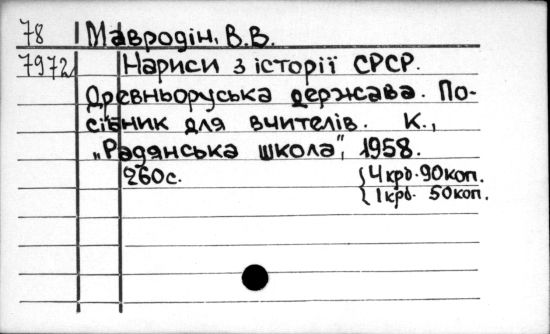 78 Мавродін, В.В.
7972 Нариси з історії СРСР.
Древньоруська держава. По-
сібник для вчителів. К.,
„Радянська школа", 1958.
260с. {4крб. 90коп.
{1крб. 50коп.